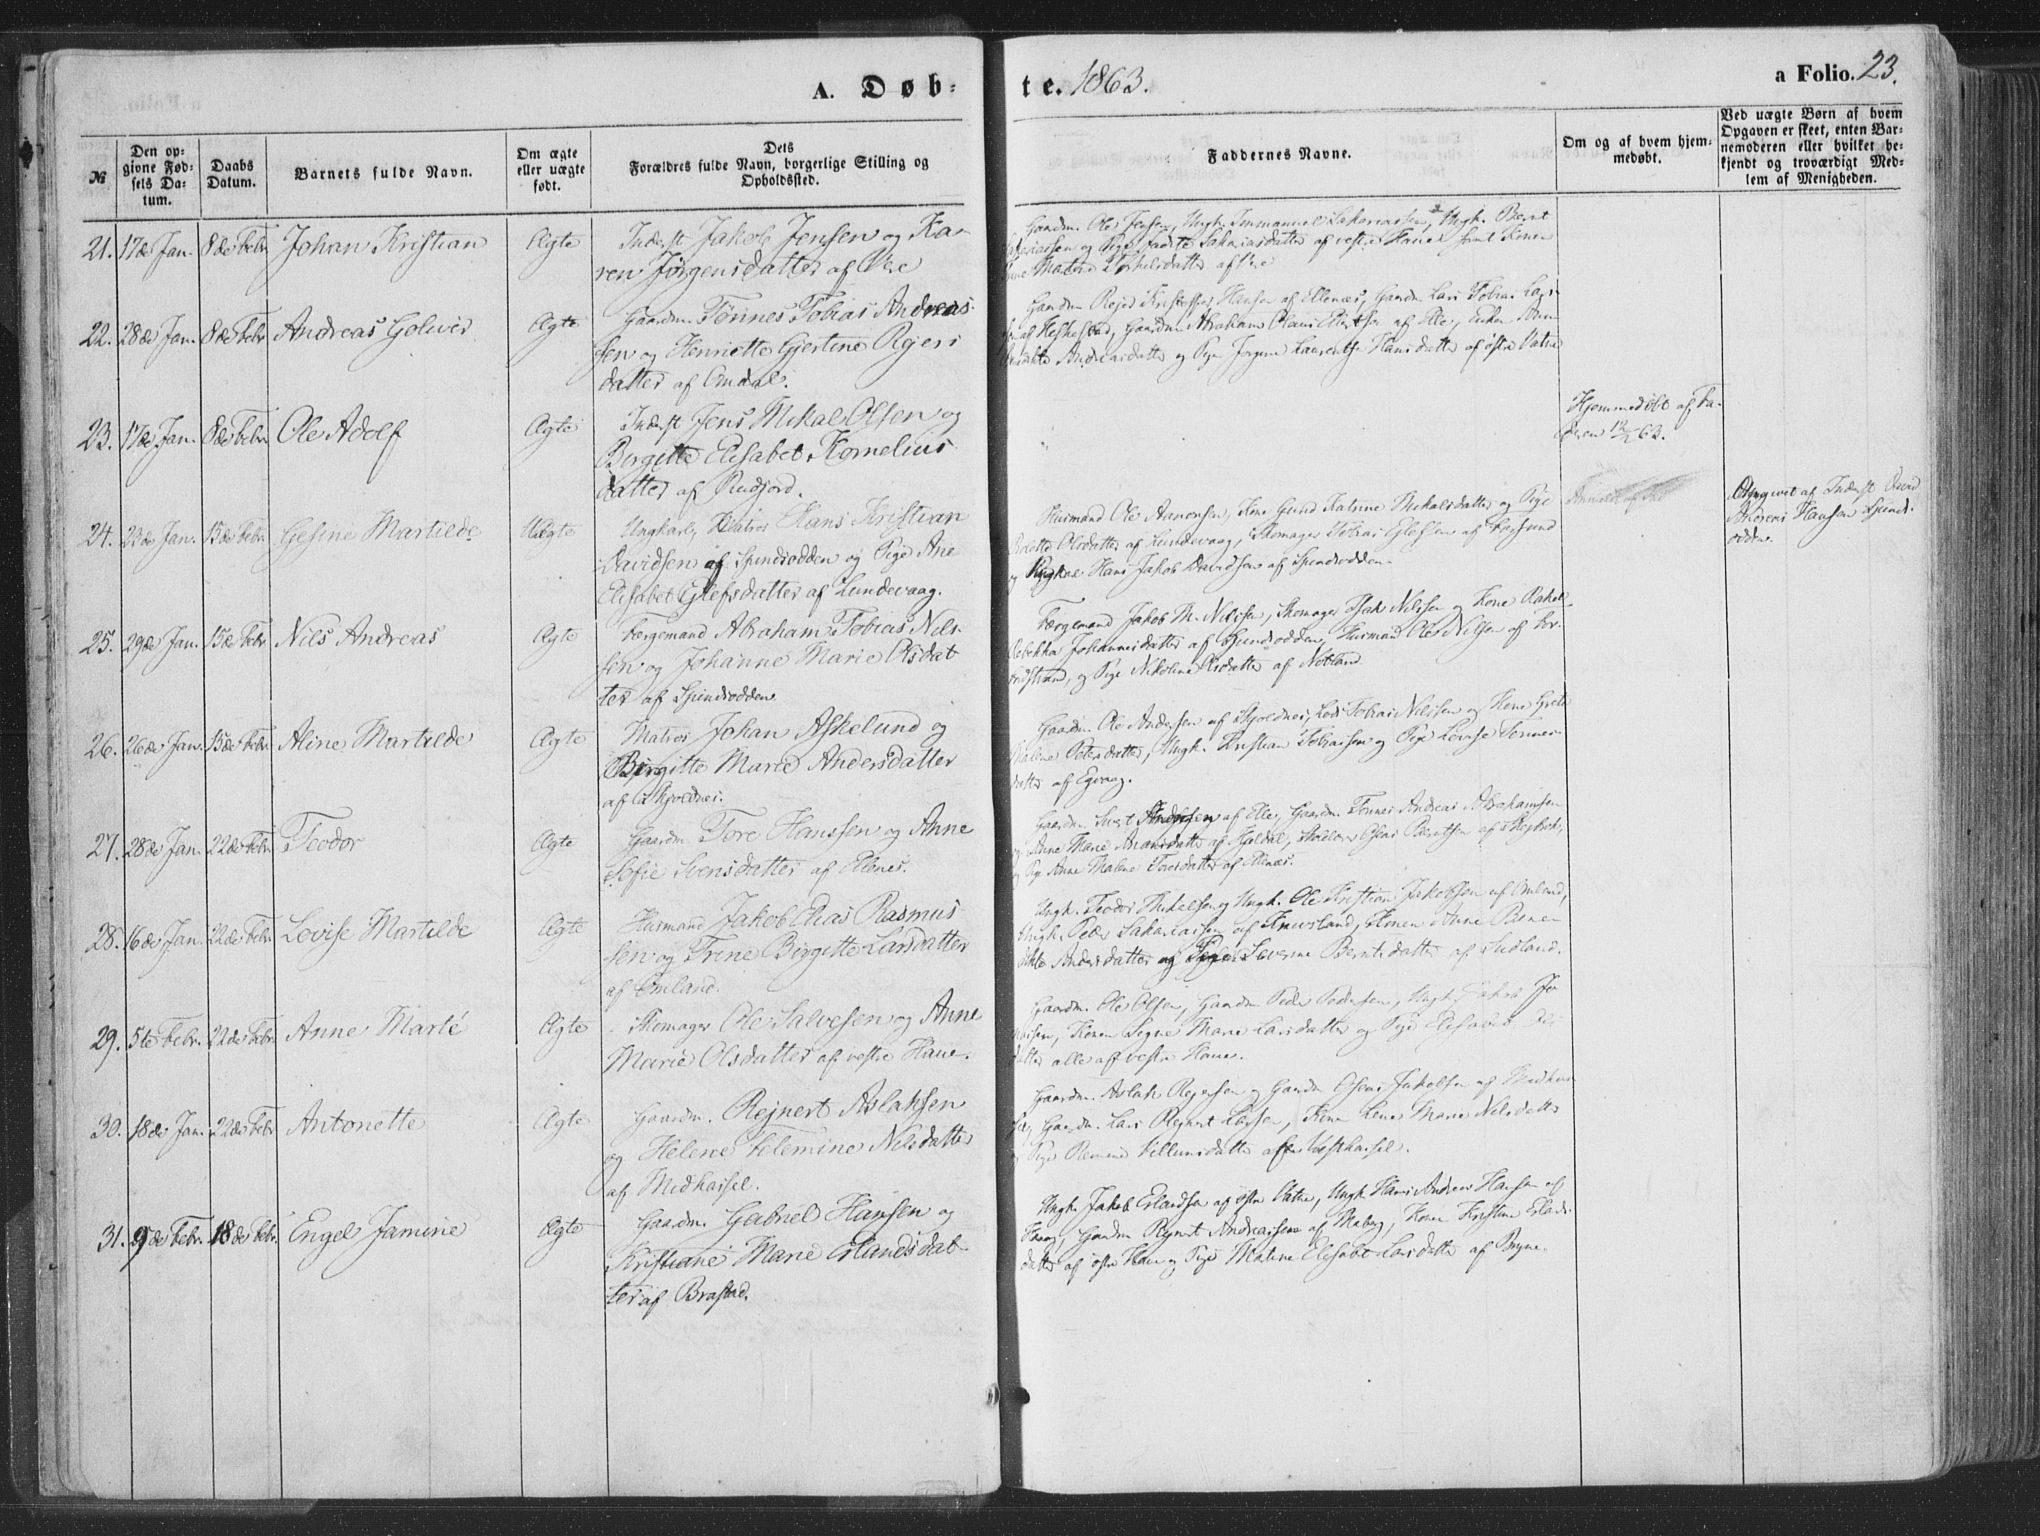 A. Døb-
te. 1863.
a Folio. 23.
№
Den op-
givne Fød-
sels Da-
tum.
Daabs
Datum.
Barnets fulde Navn.
Om ægte
eller uægte
født.
Dets
Forældres fulde Navn, borgerlige Stilling og
Opholdssted.
Faddernes Navne.
Om og af hvem hjem-
medøbt.
Ved uægte Børn af hvem
Opgaven er skeet, enten Bar-
nemoderen eller hvilket be-
kjendt og troværdigt Med-
lem af Menigheden.
21. 17de Jan. 8de Febr. Johan Kristian Ægte Inderst Jakob Jensen og Ka-
ren Jørgensdatter af Ore
Gaardm. Ole Jensen, Ungk. Immanuel Sakariassen, Ungk. Bernt
Sakariassen og Pige Sakariasdatter af vestre Haue samt Konen
Malene Torkelsdatter af Ore
22. 28de Jan. 8de Febr. Andreas Goliver Ægte Gaardm. Tønnes Tobias Andreas-
sen og Henriette Gjertine Rejers
datter af Omdal.
Gaardm. Rejer Kristoffer Hansen af Ellenæs, Gaardm. Lars Tobias Lars-
sen af Heskestad, Gaardm. Abraham Olaus Berntsen af Elle, Enken Anne
Andreasdatter og Pige Jørgine Laurentse Hansdatter af østre Vatne
23. 17de Jan. 8de Febr. Ole Adolf Ægte Inderst Jens Mikal Olsen og
Birgitte Elisabet Kornelius
datter af Rudjord.
Hjemmedøbt af Fa-
deren 63.
24. 23de Jan. 15de Febr. Gesine Martilde Uægte Ungkarl, Matros Hans Kristian
Davidsen af Spindsodden og Pige Ane
Elisabet Elefsdatter af Lundevaag.
Husmand Ole Aanensen, Kone Gurid Katrine Mikalsdatter og Pige
Olsdatter af Lundevaag, Skomager Tobias Elefsen af Farsund
og Ungkarl Hans Jakob Davidsen af Spindsodden.
Anmeldt af
Opgivet af Inderst David
Andreas Hansen Spinds-
odden.
25. 29de Jan. 15de Febr. Nils Andreas Ægte Færgemand Abraham Tobias Nils-
sen og Johanne Marie Olsdat-
ter af Spindsodden
Færgemand Jakob M. Nilssen, Skomager Isak Nilssen og Kone Rakel
Rebekka Johannesdatter af Spindsodden, Husmand Ole Nilsen af
og Pige Nikoline Olsdatter af Nobland
26. 26de Jan. 15de Febr. Aline Martilde Ægte Matros Johan Askelund og
Birgitte Marie Andersdatter
af Skjoldnes.
Gaardm. Ole Andersen af Skjoldnes, Lods Tobias Nilssen og Kone Grete
Malene Petersdatter, Ungk. Kristian Tobiassen og Pige Lovise Tønnes-
datter af Egvaag.
27. 28de Jan. 22de Febr. Teodor Ægte Gaardm. Tore Hanssen og Anne
Sofie Svensdatter af Ellenes.
Gaardm. Sivert Andersen af Elle, Gaardm. Tønnes Andreas Abrahamsen
og Anne Marie datter af Hjeldal, Berntsen af
og Pige Anne Malene Toresdatter af Ellenæs.
28. 16de Jan. 22de Febr. Lovise Martilde Ægte Husmand Jakob Elias Rasmus-
sen og Trine Birgitte Larsdatter
af Omland.
Ungk. Teodor Mikalsen og Ungk. Ole Kristian Jakobsen af Omland,
Ungk. Peder Sakariassen af , Konen Anne Bene-
dikte Andersdatter og Pigen Severine Berntsdatter af Sudland.
29. 5te Febr. 22de Febr. Anne Marté Ægte Skomager Ole Salvesen og Anne
Marie Olsdatter af vestre Haue.
Gaardm. Ole Olsen, Gaardm. Peder Pedersen, Ungk. Jakob
Konen Signe Marie Larsdatter og Pige Elisabet
datter alle af vestre Haue.
30. 18de Jan. 22de Febr. Antonette Ægte Gaardm. Rejnert Aslaksen
og Helene Velemine Nilsdatter
af Midhassel.
Gaardm. Aslak Rejersen og Gaardm. Jakobsen af Midhas-
sel, Gaardm. Lars Rejnert Larsen, Kone Lene Marie Nilsdatter
og Pige Villumsdatter af Vesthassel.
31. 9de Febr. 18de Febr. Engel Jamine Ægte Gaardm. Gabriel Hansen og
Kristiane Marie Erlandsdat-
ter af Brastad.
Ungk. Jakob Erlandsen af østre Vatne, Ungk. Hans Andreas Hansen af
Gaardm. Rejnert Andreassen af Maberg, Kone Kristine Erlands-
datter af østre Haue og Pige Malene Elisabet Larsdatter af Bryne.